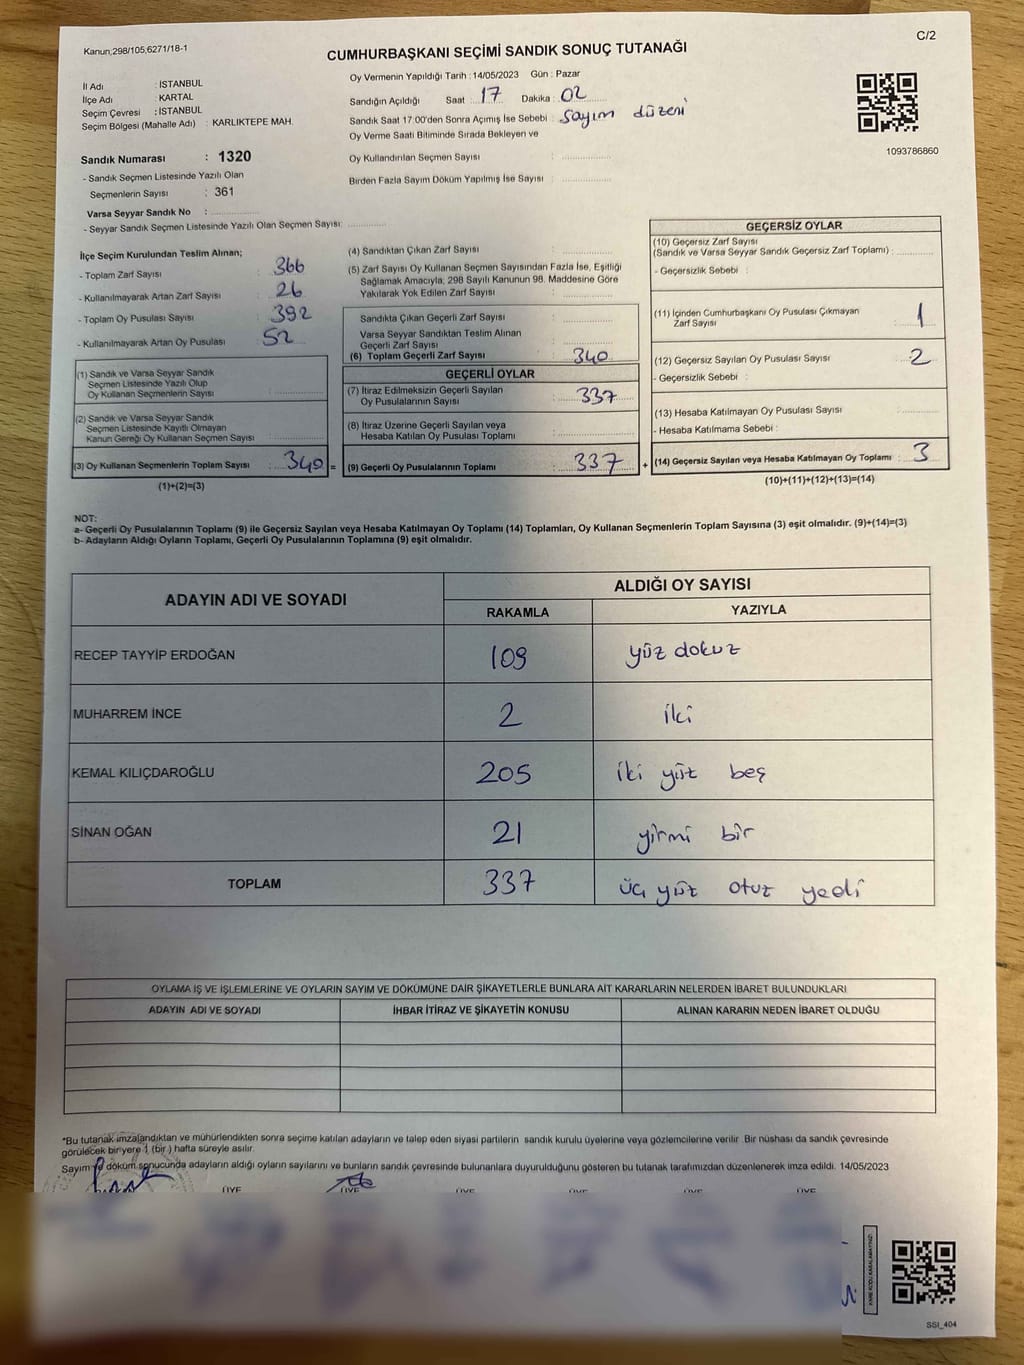 Kanun;298/105,6271/18-1
C/2
CUMHURBAŞKANI SEÇİMİ SANDIK SONUÇ TUTANAĞI
İl Adı : İSTANBUL
İlçe Adı : KARTAL
Seçim Çevresi : İSTANBUL
Seçim Bölgesi (Mahalle Adı) : KARLIKTEPE MAH.
Sandık Numarası : 1320
- Sandık Seçmen Listesinde Yazılı Olan
Seçmenlerin Sayısı : 361
Varsa Seyyar Sandık No :
- Seyyar Sandık Seçmen Listesinde Yazılı Olan Seçmen Sayısı:
Oy Vermenin Yapıldığı Tarih : 14/05/2023 Gün : Pazar
Sandığın Açıldığı Saat : 17 Dakika : 02
Sandık Saat 17:00'den Sonra Açımış İse Sebebi : Sayım düzeni
Oy Verme Saati Bitiminde Sırada Bekleyen ve
Oy Kullandırılan Seçmen Sayısı :
Birden Fazla Sayım Döküm Yapılmış İse Sayısı :
1093786860
İlçe Seçim Kurulundan Teslim Alınan;
- Toplam Zarf Sayısı : 366
- Kullanılmayarak Artan Zarf Sayısı : 26
- Toplam Oy Pusulası Sayısı : 392
- Kullanılmayarak Artan Oy Pusulası : 52
(1) Sandık ve Varsa Seyyar Sandık
Seçmen Listesinde Yazılı Olup
Oy Kullanan Seçmenlerin Sayısı :
(2) Sandık ve Varsa Seyyar Sandık
Seçmen Listesinde Kayıtlı Olmayan
Kanun Gereği Oy Kullanan Seçmen Sayısı :
(3) Oy Kullanan Seçmenlerin Toplam Sayısı : 340 =
(1)+(2)=(3)
(4) Sandıktan Çıkan Zarf Sayısı :
(5) Zarf Sayısı Oy Kullanan Seçmen Sayısından Fazla İse, Eşitliği
Sağlamak Amacıyla, 298 Sayılı Kanunun 98. Maddesine Göre
Yakılarak Yok Edilen Zarf Sayısı :
Sandıkta Çıkan Geçerli Zarf Sayısı :
Varsa Seyyar Sandıktan Teslim Alınan
Geçerli Zarf Sayısı :
(6) Toplam Geçerli Zarf Sayısı : 340
GEÇERLİ OYLAR
(7) İtiraz Edilmeksizin Geçerli Sayılan
Oy Pusulalarının Sayısı : 337
(8) İtiraz Üzerine Geçerli Sayılan veya
Hesaba Katılan Oy Pusulası Toplamı :
(9) Geçerli Oy Pusulalarının Toplamı : 337 +
GEÇERSİZ OYLAR
(10) Geçersiz Zarf Sayısı
(Sandık ve Varsa Seyyar Sandık Geçersiz Zarf Toplamı) :
- Geçersizlik Sebebi :
(11) İçinden Cumhurbaşkanı Oy Pusulası Çıkmayan
Zarf Sayısı : 1
(12) Geçersiz Sayılan Oy Pusulası Sayısı : 2
- Geçersizlik Sebebi :
(13) Hesaba Katılmayan Oy Pusulası Sayısı :
- Hesaba Katılmama Sebebi :
(14) Geçersiz Sayılan veya Hesaba Katılmayan Oy Toplamı : 3
(10)+(11)+(12)+(13)=(14)
NOT:
a- Geçerli Oy Pusulalarının Toplamı (9) ile Geçersiz Sayılan veya Hesaba Katılmayan Oy Toplamı (14) Toplamları, Oy Kullanan Seçmenlerin Toplam Sayısına (3) eşit olmalıdır. (9)+(14)=(3)
b- Adayların Aldığı Oyların Toplamı, Geçerli Oy Pusulalarının Toplamına (9) eşit olmalıdır.
ADAYIN ADI VE SOYADI
ALDIĞI OY SAYISI
RAKAMLA YAZIYLA
RECEP TAYYİP ERDOĞAN 109 yüz dokuz
MUHARREM İNCE 2 iki
KEMAL KILIÇDAROĞLU 205 iki yüz beş
SİNAN OĞAN 21 yirmi bir
TOPLAM 337 üç yüz otuz yedi
OYLAMA İŞ VE İŞLEMLERİNE VE OYLARIN SAYIM VE DÖKÜMÜNE DAİR ŞİKAYETLERLE BUNLARA AİT KARARLARIN NELERDEN İBARET BULUNDUKLARI
ADAYIN ADI VE SOYADI İHBAR İTİRAZ VE ŞİKAYETİN KONUSU ALINAN KARARIN NEDEN İBARET OLDUĞU
*Bu tutanak imzalandıktan ve mühürlendikten sonra seçime katılan adayların ve talep eden siyasi partilerin sandık kurulu üyelerine veya gözlemcilerine verilir. Bir nüshası da sandık çevresinde
görülecek bir yere 1 (bir ) hafta süreyle asılır.
Sayım ve döküm sonucunda adayların aldığı oyların sayılarını ve bunların sandık çevresinde bulunanlara duyurulduğunu gösteren bu tutanak tarafımızdan düzenlenerek imza edildi. 14/05/2023
ÜYE ÜYE ÜYE ÜYE ÜYE ÜYE
SSI_404